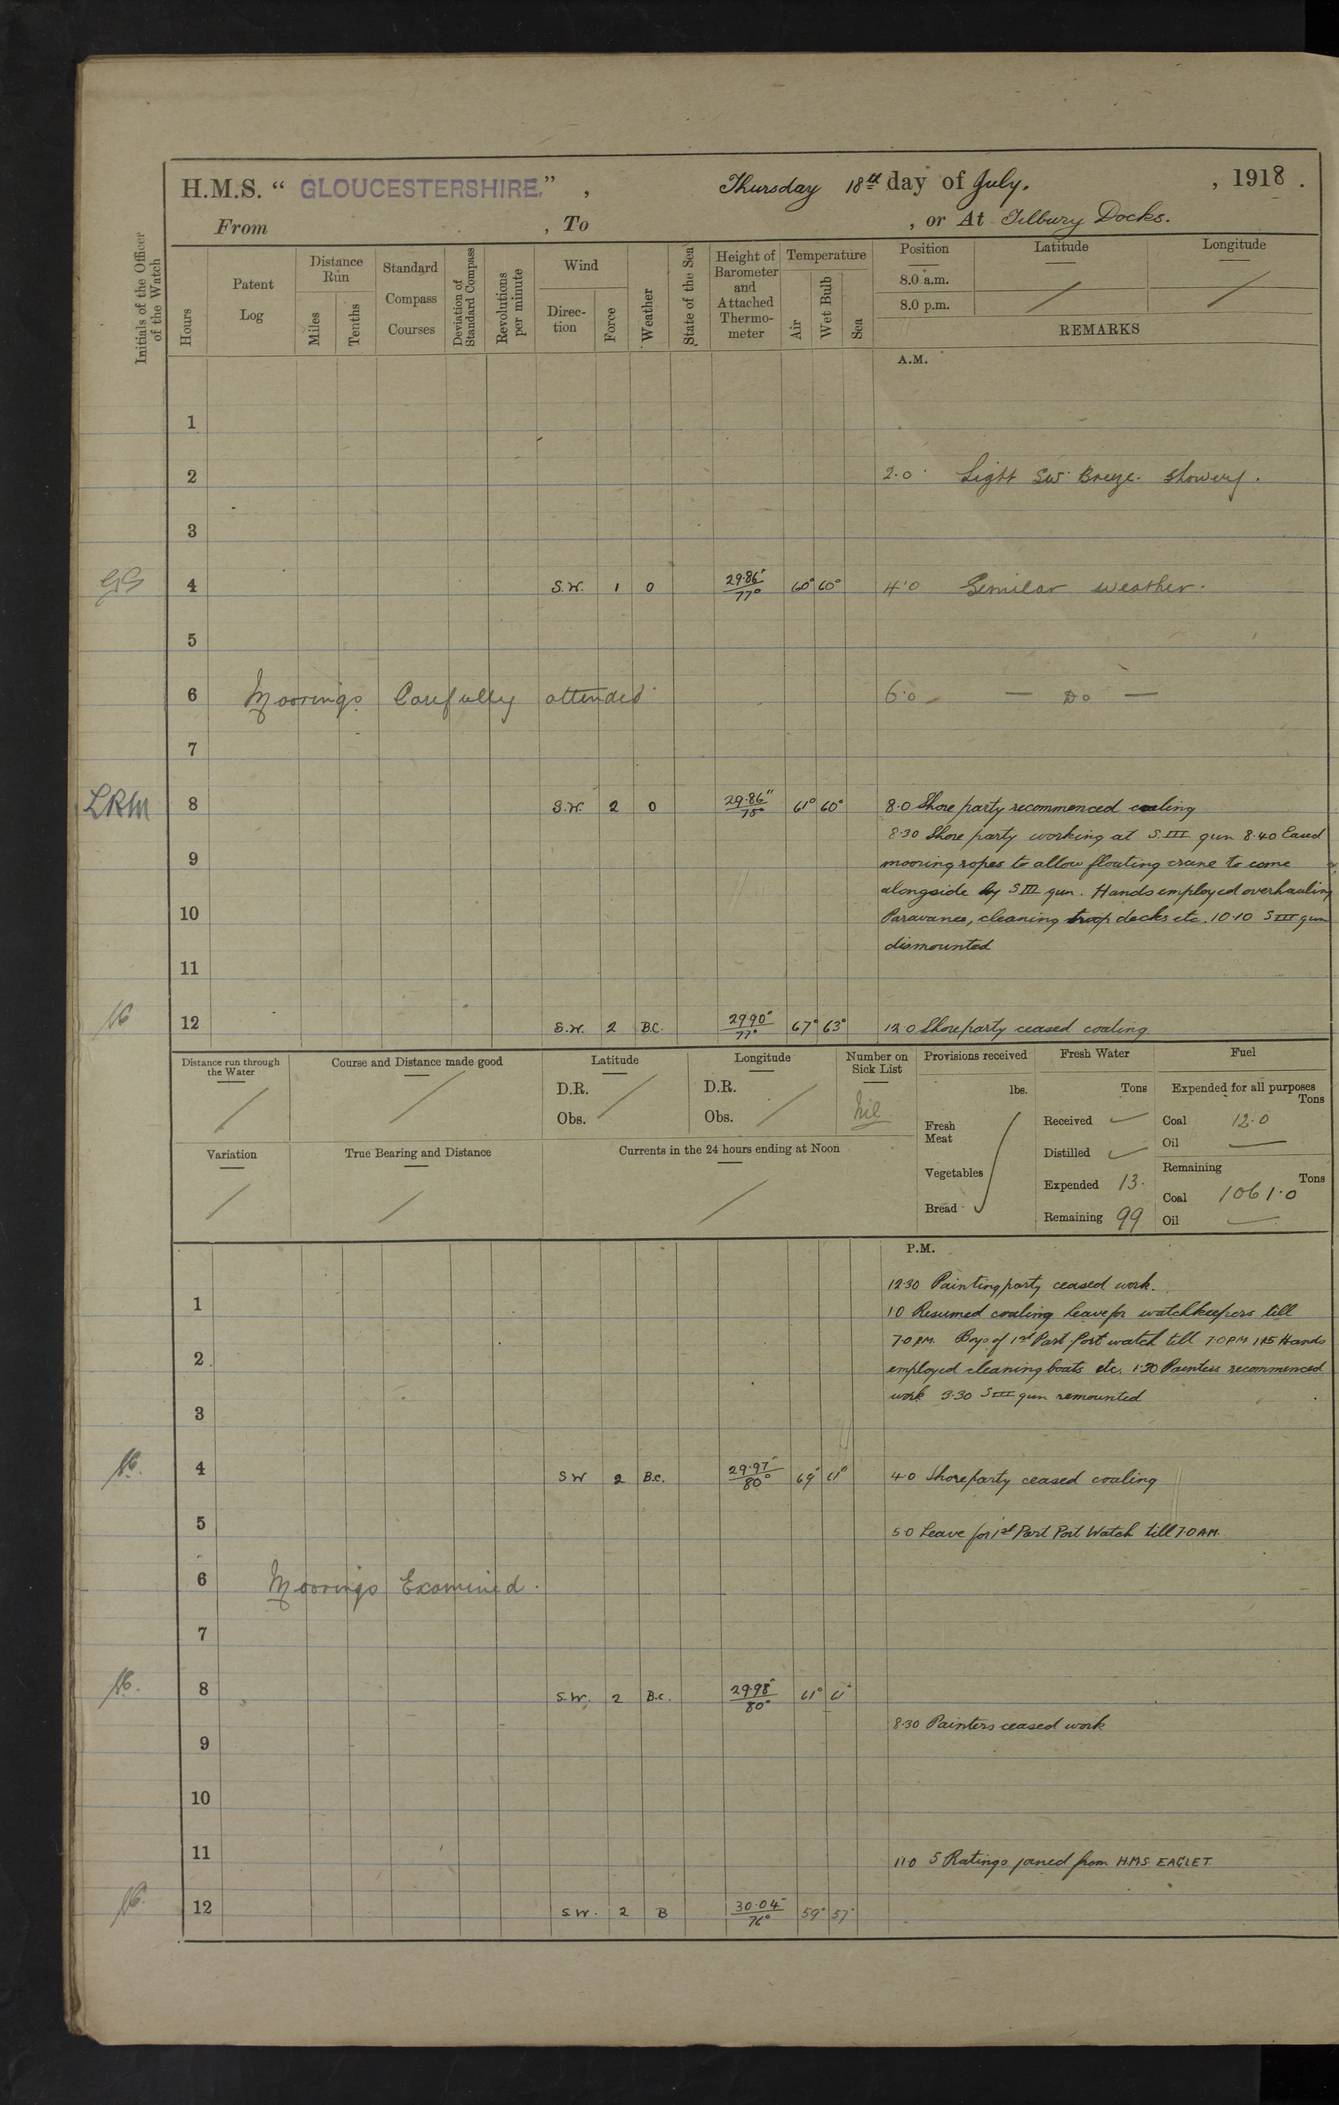 H.M.S. “ GLOUCESTERSHIRE. ” , Thursday 18th day of July. , 1918 .
From , To , or At Tilbury Docks.
Initials of the Officer of the Watch
Hours
Patent Log
Distance Run
Miles
Tenths
Standard Compass Courses
Deviation of Standard Compass
Revolutions per minute
Wind
Direction
Force
Weather
State of the Sea
Height of Barometer and Attached Thermometer
Temperature
Air
Wet Bulb
Sea
Position Latitude Longitude
8.0 a.m.
8.0 p.m.
REMARKS
A.M.
1
2 2.0 Light SW. Breeze. Showery.
3
4 S.W. 1 O 29.86 77° 60° 60° 4.0 Similar weather.
5
6 Moorings Carefully attended 6.0 — Do —
7
LRM 8 S.W. 2 O 29.86" 75° 61° 60° 8.0 Shore party recommenced coaling
8.30 Shore party working at S.III gun 8.40 Eased
9 mooring ropes to allow floating crane to come
alongside by S III gun. Hands employed overhauling
10 Paravanes, cleaning troop decks etc. 10.10 S III gun
dismounted
11
12 S.W. 2 B.C. 29.90 77° 67° 63° 12.0 Shore party ceased coaling
Distance run through the Water
Course and Distance made good
Latitude
D.R.
Obs.
Longitude
D.R.
Obs.
Number on Sick List
Nil
Provisions received
lbs.
Fresh Meat
Vegetables
Bread
Fresh Water
Tons
Received
Distilled
Expended 13.
Remaining 99
Fuel
Expended for all purposes
Tons
Coal 12.0
Oil
Remaining
Tons
Coal 1061.0
Oil
Variation
True Bearing and Distance
Currents in the 24 hours ending at Noon
P.M.
12.30 Painting party ceased work.
1 1.0 Resumed coaling Leave for watchkeepers till
7.0 P.M. Boys of 1st Part Port watch till 7.0 P.M. 1.15 Hands
2 employed cleaning boats etc. 1.30 Painters recommenced
work 3.30 S III gun remounted
3
4 SW 2 B.C. 29.97 80° 69° 61° 4.0 Shore party ceased coaling
5 5.0 Leave for 1st Part Port Watch till 7.0 A.M.
6 Moorings Examined.
7
8 S.W. 2 B.C. 29.98 80° 61° 61°
8.30 Painters ceased work
9
10
11 11.0 5 Ratings joined from H.M.S. EAGLET.
12 S.W. 2 B 30.04 76° 59° 57°